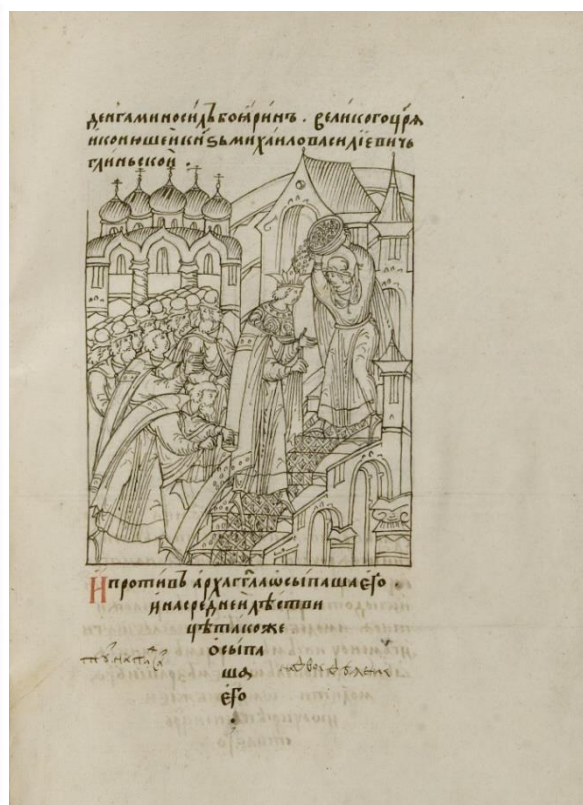 деньгами носилъ боꙗринъ . великого цр҃я
и конюшей кн҃ѕь михаило василіевичь
глиньской .
И противъ архаг҃гла ѡсыпаша єго .
и на среднеи лѣстви
цѣ такоже
ѻсыпа
шѧ
єго